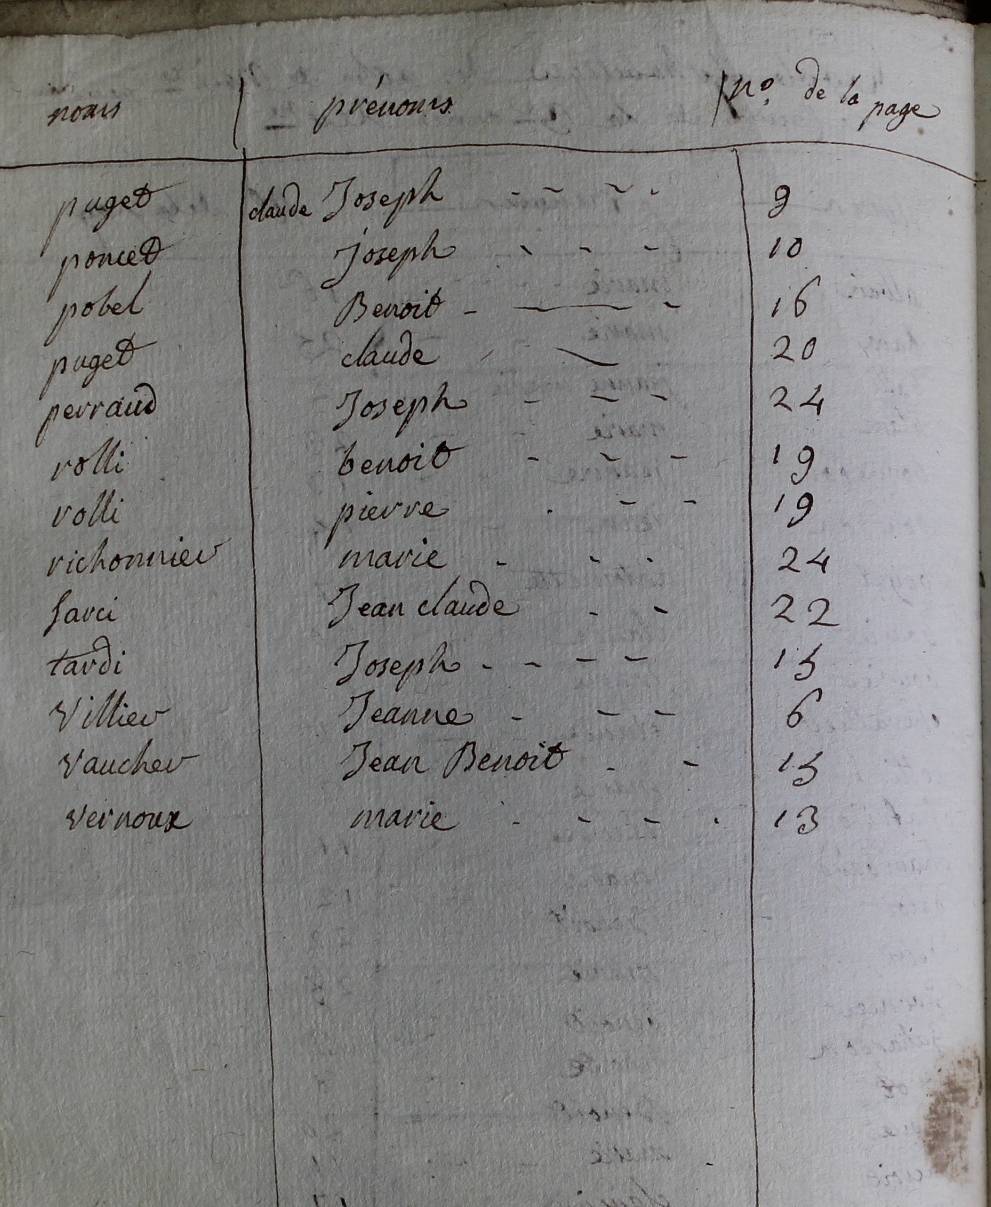 noms prénoms no. de la page
puget claude Joseph 9
poncet joseph 10
pobel Benoit 16
puget claude 20
perraud Joseph 24
rolli benoit 19
rolli pierre 19
richonnier marie 24
Sarci Jean claude 22
tardi Joseph 15
Villier Jeanne 6
Vaucher Jean Benoit 15
Vernoux marie 13